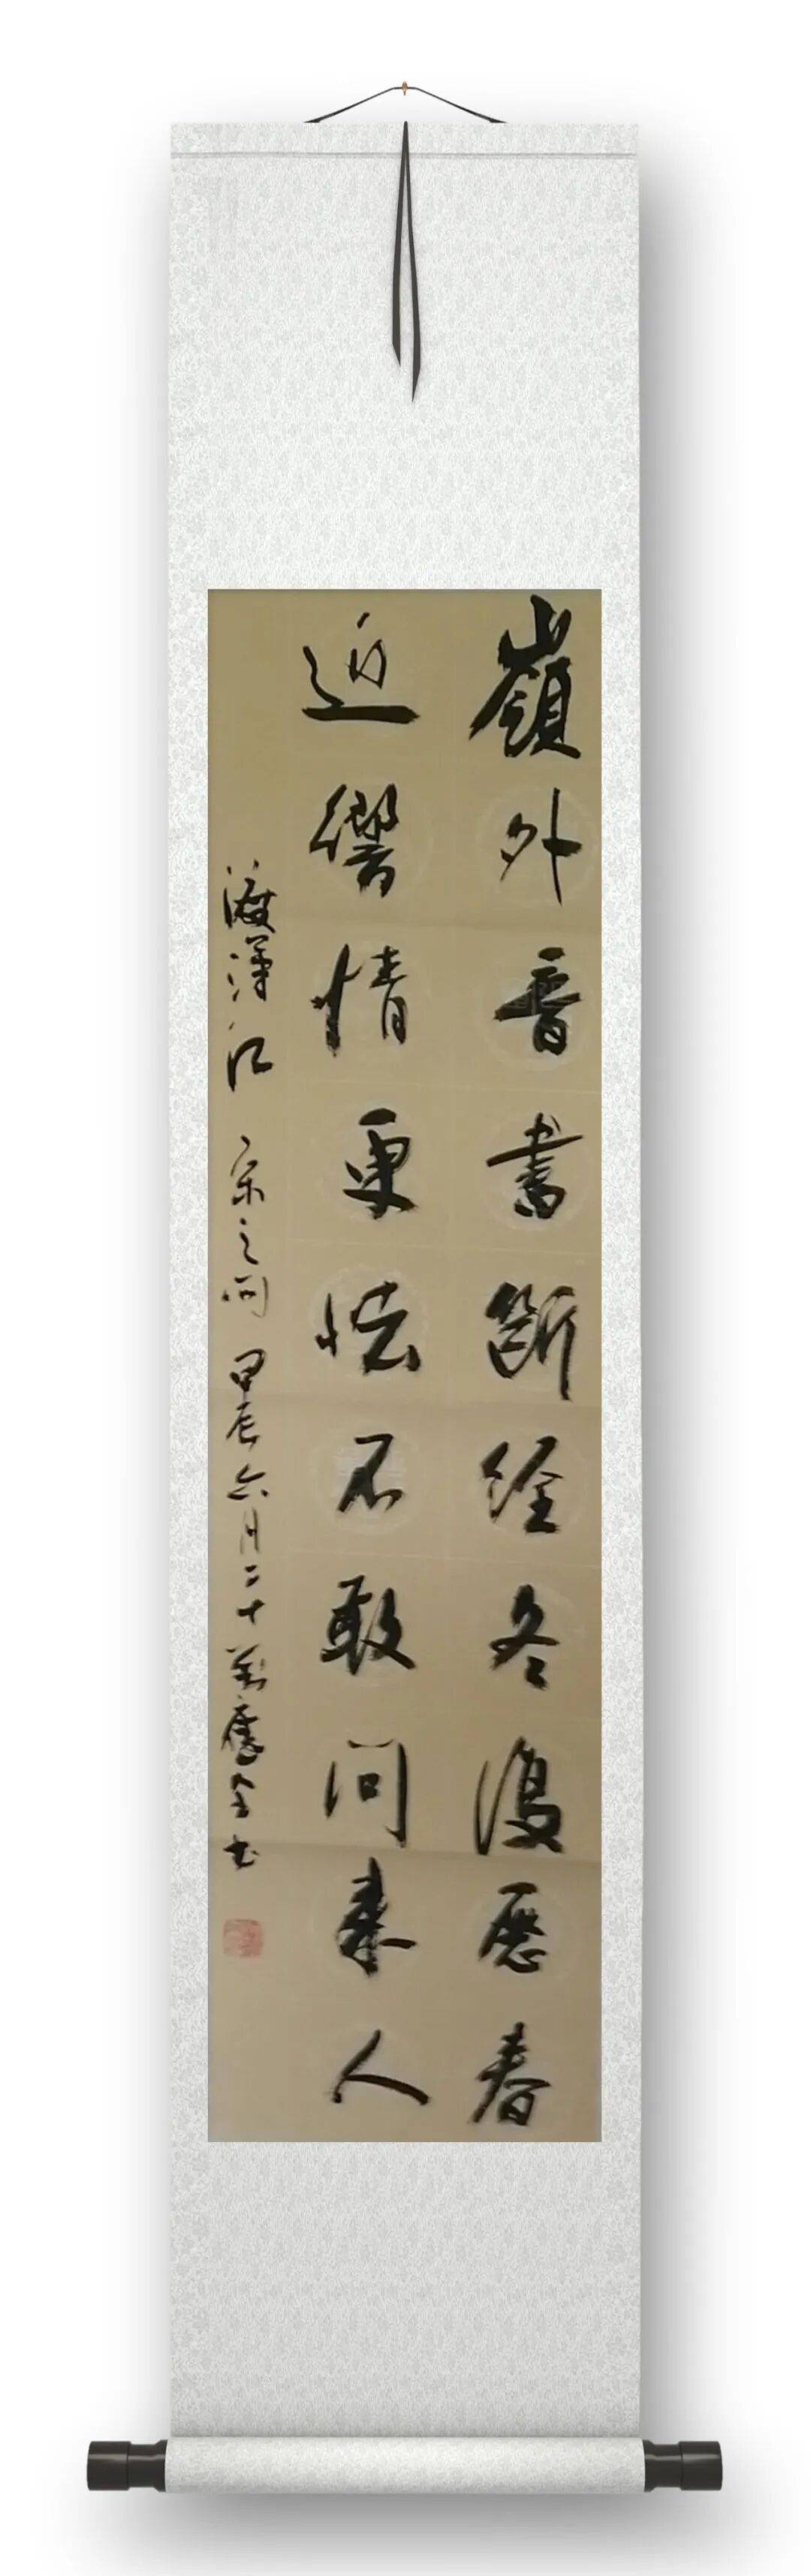 嶺外音書斷經冬復歷春
近響情更怯不敢問來人
渡漢江 宋之問 甲辰六月二十 书